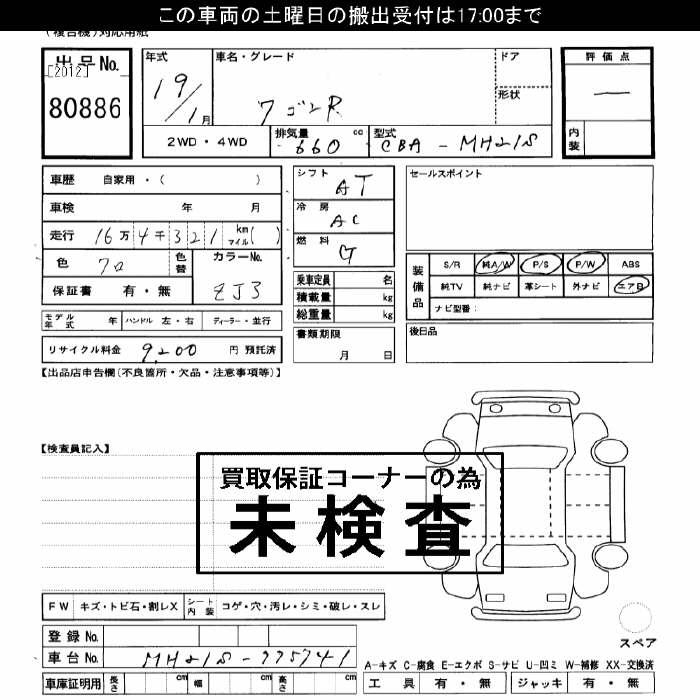 この車両の土曜日の搬出受付は17:00まで
(複合機)対応用紙
出品No.
[2012]
80886
年式
19/1月
車名・グレード
ワゴンR
ドア
形状
2WD・4WD
排気量 660 cc
型式 CBA-MH21S
評価点
—
内装
車歴 自家用・( )
車検 年 月
走行 16万4千321 km マイル( )
色 クロ
色替
カラーNo. ZJ3
保証書 有・無
モデル年式 年 ハンドル 左・右 ディーラー・並行
リサイクル料金 9,200 円 預託済
シフト AT
冷房 AC
燃料 G
乗車定員 名
積載量 kg
総重量 kg
書類期限
月 日
セールスポイント
装備品
S/R 純A/W P/S P/W ABS
純TV 純ナビ 革シート 外ナビ エアB
ナビ型番:
後日品
【出品店申告欄(不良箇所・欠品・注意事項等)】
【検査員記入】
買取保証コーナーの為
未検査
FW キズ・トビ石・割レX シート内装 コゲ・穴・汚レ・シミ・破レ・スレ
登録No.
車台No. MH21S-775741
車庫証明用 長さ cm 幅 cm 高さ cm
スペア
A-キズ C-腐食 E-エクボ S-サビ U-凹ミ W-補修 XX-交換済
工具 有・無 ジャッキ 有・無